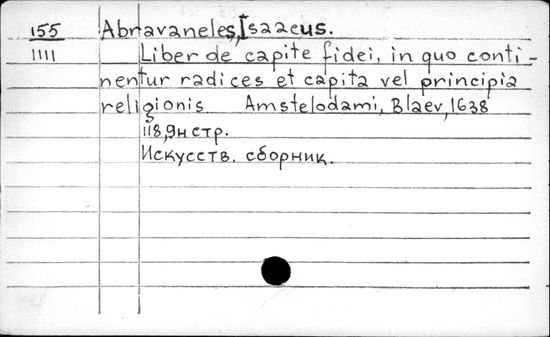 155 Abravaneles, Isaacus.
1111 Liber de capite fidei, in quo conti-
nentur radices et capita vel principia
religionis Amstelodami, Blaev, 1638
118,9н стр.
Искусств. сборник.